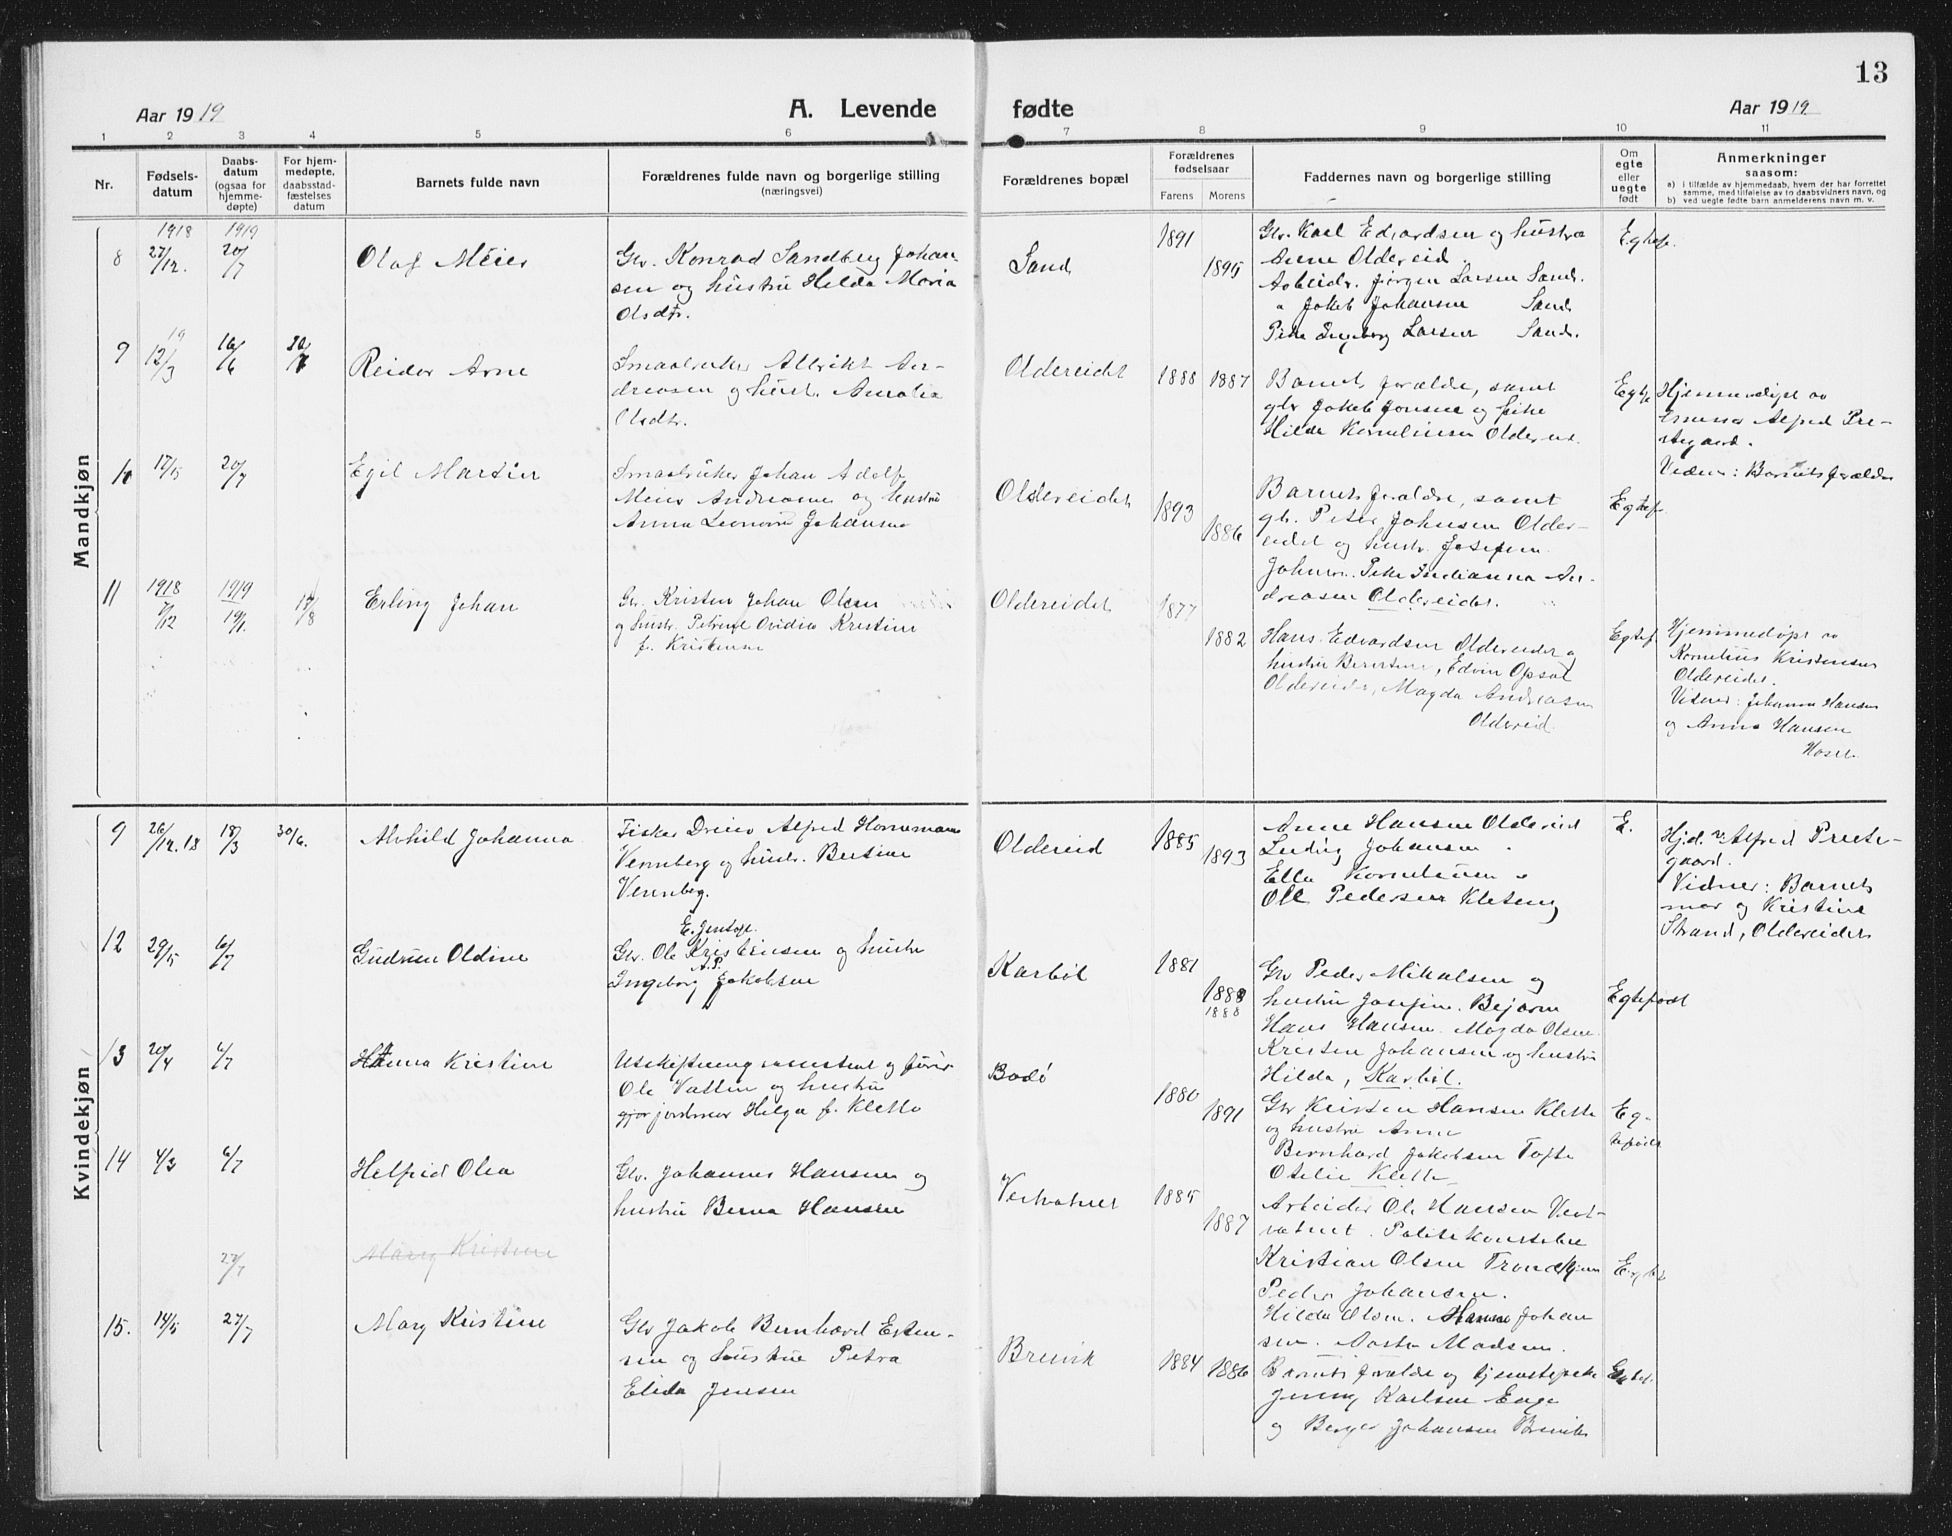 13
Aar 1919
A. Levende fødte
Aar 1919
1 2 3 4 5 6 7 8 9 10 11
Nr.
Fødsels-
datum
Daabs-
datum
(ogsaa for
hjemme-
døpte)
For hjem-
medøpte,
daabsstad-
fæstelses
datum
Barnets fulde navn
Forældrenes fulde navn og borgerlige stilling
(næringsvei)
Forældrenes bopæl
Forældrenes
fødselsaar
Farens Morens
Faddernes navn og borgerlige stilling
Om
egte
eller
uegte
født
Anmerkninger
saasom:
a) i tilfælde av hjemmedaab, hvem der har forrettet
samme, med tilføielse av to daabsvidners navn, og
b) ved uegte fødte barn anmelderens navn m. v.
Mandkjøn
8
1918
27/12.
1919
20/7
Olaf Meier
Gbr. Konrad Sandberg Johan
sen og hustru Helda Maria
Olsdtr.
Sand
1891
1895
Gbr. Karl Edvardsen og hustru
Anne Oldereid.
Arbeidr. Jørgen Larsen Sand.
" Jakob Johansen Sand
Pike Ingeborg Larsen Sand.
Egtef.
9
19
12/3
16/6
Reidar Arne
Smaabruker Albrikt An-
dreasen og hust. Amalia
Olsdtr.
Oldereidet
1888 1887
Barnets forældre, samt
gbr Jakob Jonsen og pike
Hilda Korneliusen
Hjemmedøpt av
Alfred Pre-
stegaard.
Vidner: Barnets forældre
10
17/5
20/7
Egil Martin
Smaabruker Johan Adolf
Meier Andreasen og hustru
Anna Leonore Johansen
Oldereidet
1893
1886
Barnets forældre, samt
gbr. Peter Johnsen Older-
eidet og hustr. Josefine
Johnsen. Pike Indianna An-
dreasen Oldereidet.
Egtef.
11
1918
7/12
1919
19/1.
17/8
Erling Johan
Gbr. Kristen Johan Olsen
og hustr. Petrine Ovidia Kristine
f. Kristensen
Oldereidet
1877
1882
Hans Edvardsen Oldereidet og
hustru Berntine, Edvin Opsal
Oldereidet, Magda Andreasen
Oldereid.
Egtef.
Hjemmedøpt av
Kornelius Kristensen
Oldereidet.
Vidner: Johanna Hansen
og Anna Hansen
Kvindekjøn
9
26/12.18
18/3
30/6.
Alvhild Johanna
Fisker Alfred Hornemann
Vennberg og hustr. Bertine
Vennberg.
Oldereid
1885
1893
Anne Hansen Oldereid
Ludvig Johansen "
Ella Kornelius "
Ole Pedersen
E.
Hj.d. v. Alfred Preste-
gaard.
Vidner: Barnets
mor og Kristine
Strand, Oldereidet
12
29/5
6/7
Gudrun Oldine
Gbr. Ole Kristensen og hustru
A.P.
Ingeborg Jakobsen
Karbøl
1881
1888
1888
Gbr Peder Mikalsen og
hustru Josefine. Bejarn
Hans Hansen. Magda Olsen.
Kristen Johansen og hustru
Hilda, Karbøl.
Egtefødt
13
20/4
6/7
Hanna Kristine
Utskiftningsassistent og
Ole Vatten og hustru
jordmor Helga f. Klette
Bodø
1880
1891
Gbr Kristen Hansen Klette
og hustru Anna
Bernhard Jakobsen Tofte
Otelie Klette
Eg-
tefødt
14
4/3
6/7
Helfrid Olea
Gbr. Johannes Hansen og
hustru Berna Hansen
Vestvatnet
1885
1887
Arbeider Ole Hansen Vest-
vatnet. Politikonstabel
Kristian Olsen Trondhjem
Peder Johansen.
Hilda Olsen. Hanna Johan
sen. Aasta Madsen.
27/7
Mary Kristine
15.
14/5
27/7
Mary Kristine
Gbr Jakob Bernhard Esten-
sen og hustru Petra
Elida Jensen
Breivik
1884 1886
Barnets forældre og tjenestepike
Jenny Karlsen Enge
og Berger Johansen Breivik
Egtef.